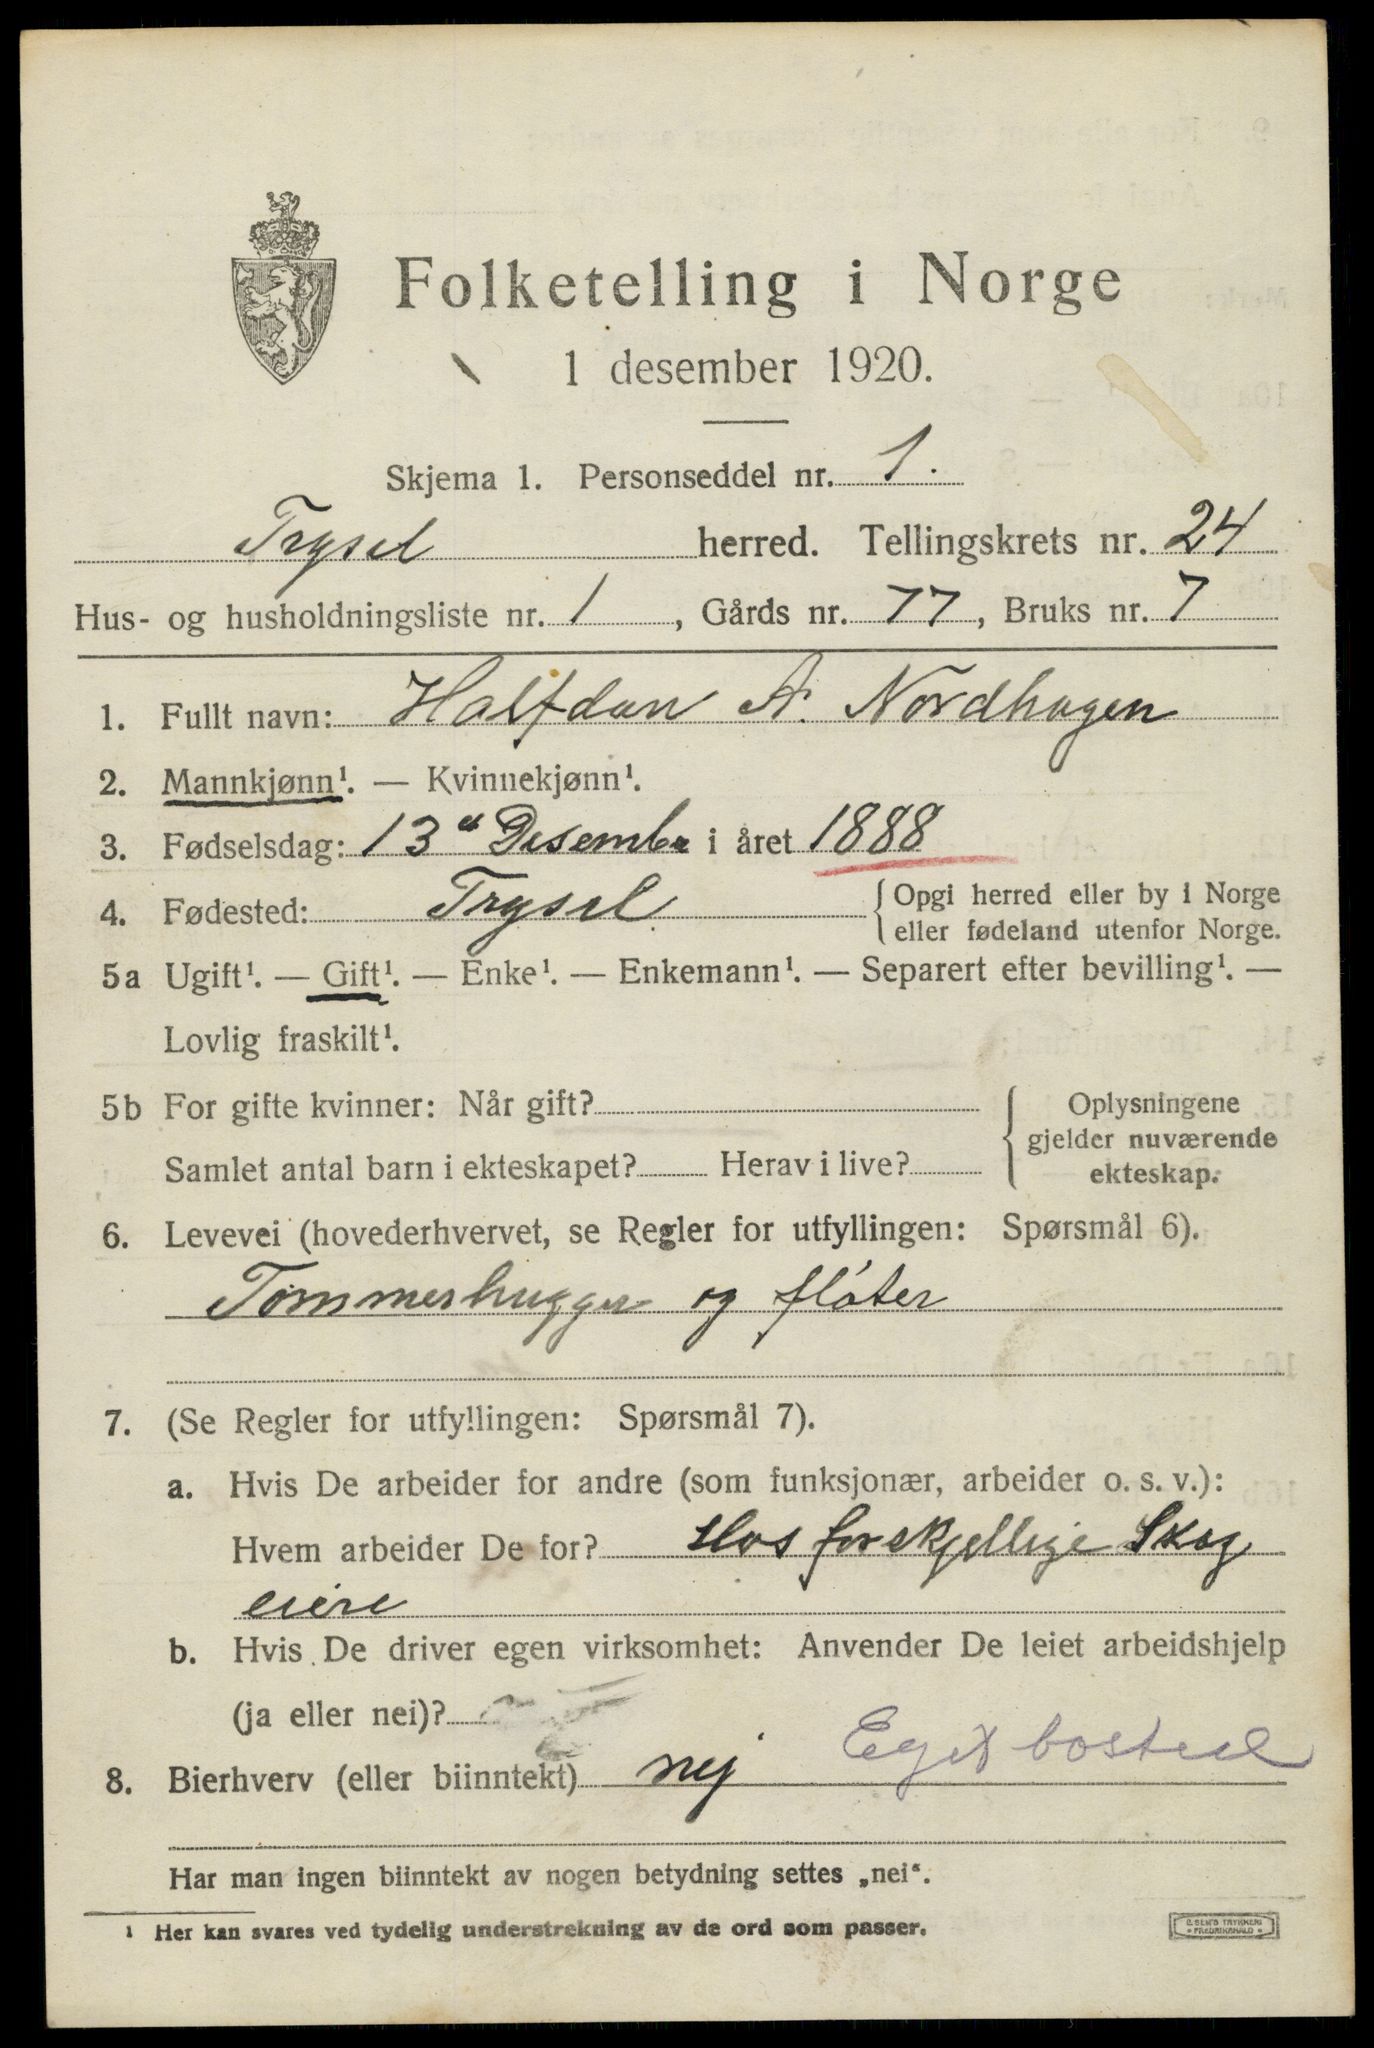 Folketelling i Norge
1 desember 1920.
Skjema 1. Personseddel nr. 1.
Trysil herred. Tellingskrets nr. 24
Hus- og husholdningsliste nr. 1, Gårds nr. 77, Bruks nr. 7
1. Fullt navn: Halfdan A. Nordhagen
2. Mannkjønn¹. — Kvinnekjønn¹.
3. Fødselsdag: 13de Desembr i året 1888
4. Fødested: Trysil {Opgi herred eller by i Norge
eller fødeland utenfor Norge.
5a Ugift¹. — Gift¹. — Enke¹. — Enkemann¹. — Separert efter bevilling¹. —
Lovlig fraskilt¹.
5b For gifte kvinner: Når gift?
Samlet antal barn i ekteskapet? Herav i live?
Oplysningene
gjelder nuværende
ekteskap.
6. Levevei (hovederhvervet, se Regler for utfyllingen: Spørsmål 6).
Tømmerhugger og fløter
7. (Se Regler for utfyllingen: Spørsmål 7).
a. Hvis De arbeider for andre (som funksjonær, arbeider o. s. v.):
Hvem arbeider De for? Hos forskjellige Skog
eiere
b. Hvis De driver egen virksomhet: Anvender De leiet arbeidshjelp
(ja eller nei)?
Eget bosted
8. Bierhverv (eller biinntekt) nej
Har man ingen biinntekt av nogen betydning settes „nei“.
¹ Her kan svares ved tydelig understrekning av de ord som passer.